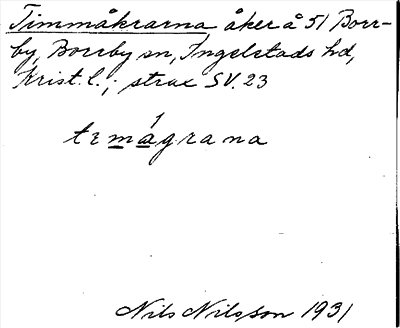 Timmåkrarna åker å 51 Borr-
by, Borrby sn, Ingelstads hd,
Krist. l.; strax SV. 23
1
tɪmågrana
Nils Nilsson 1931